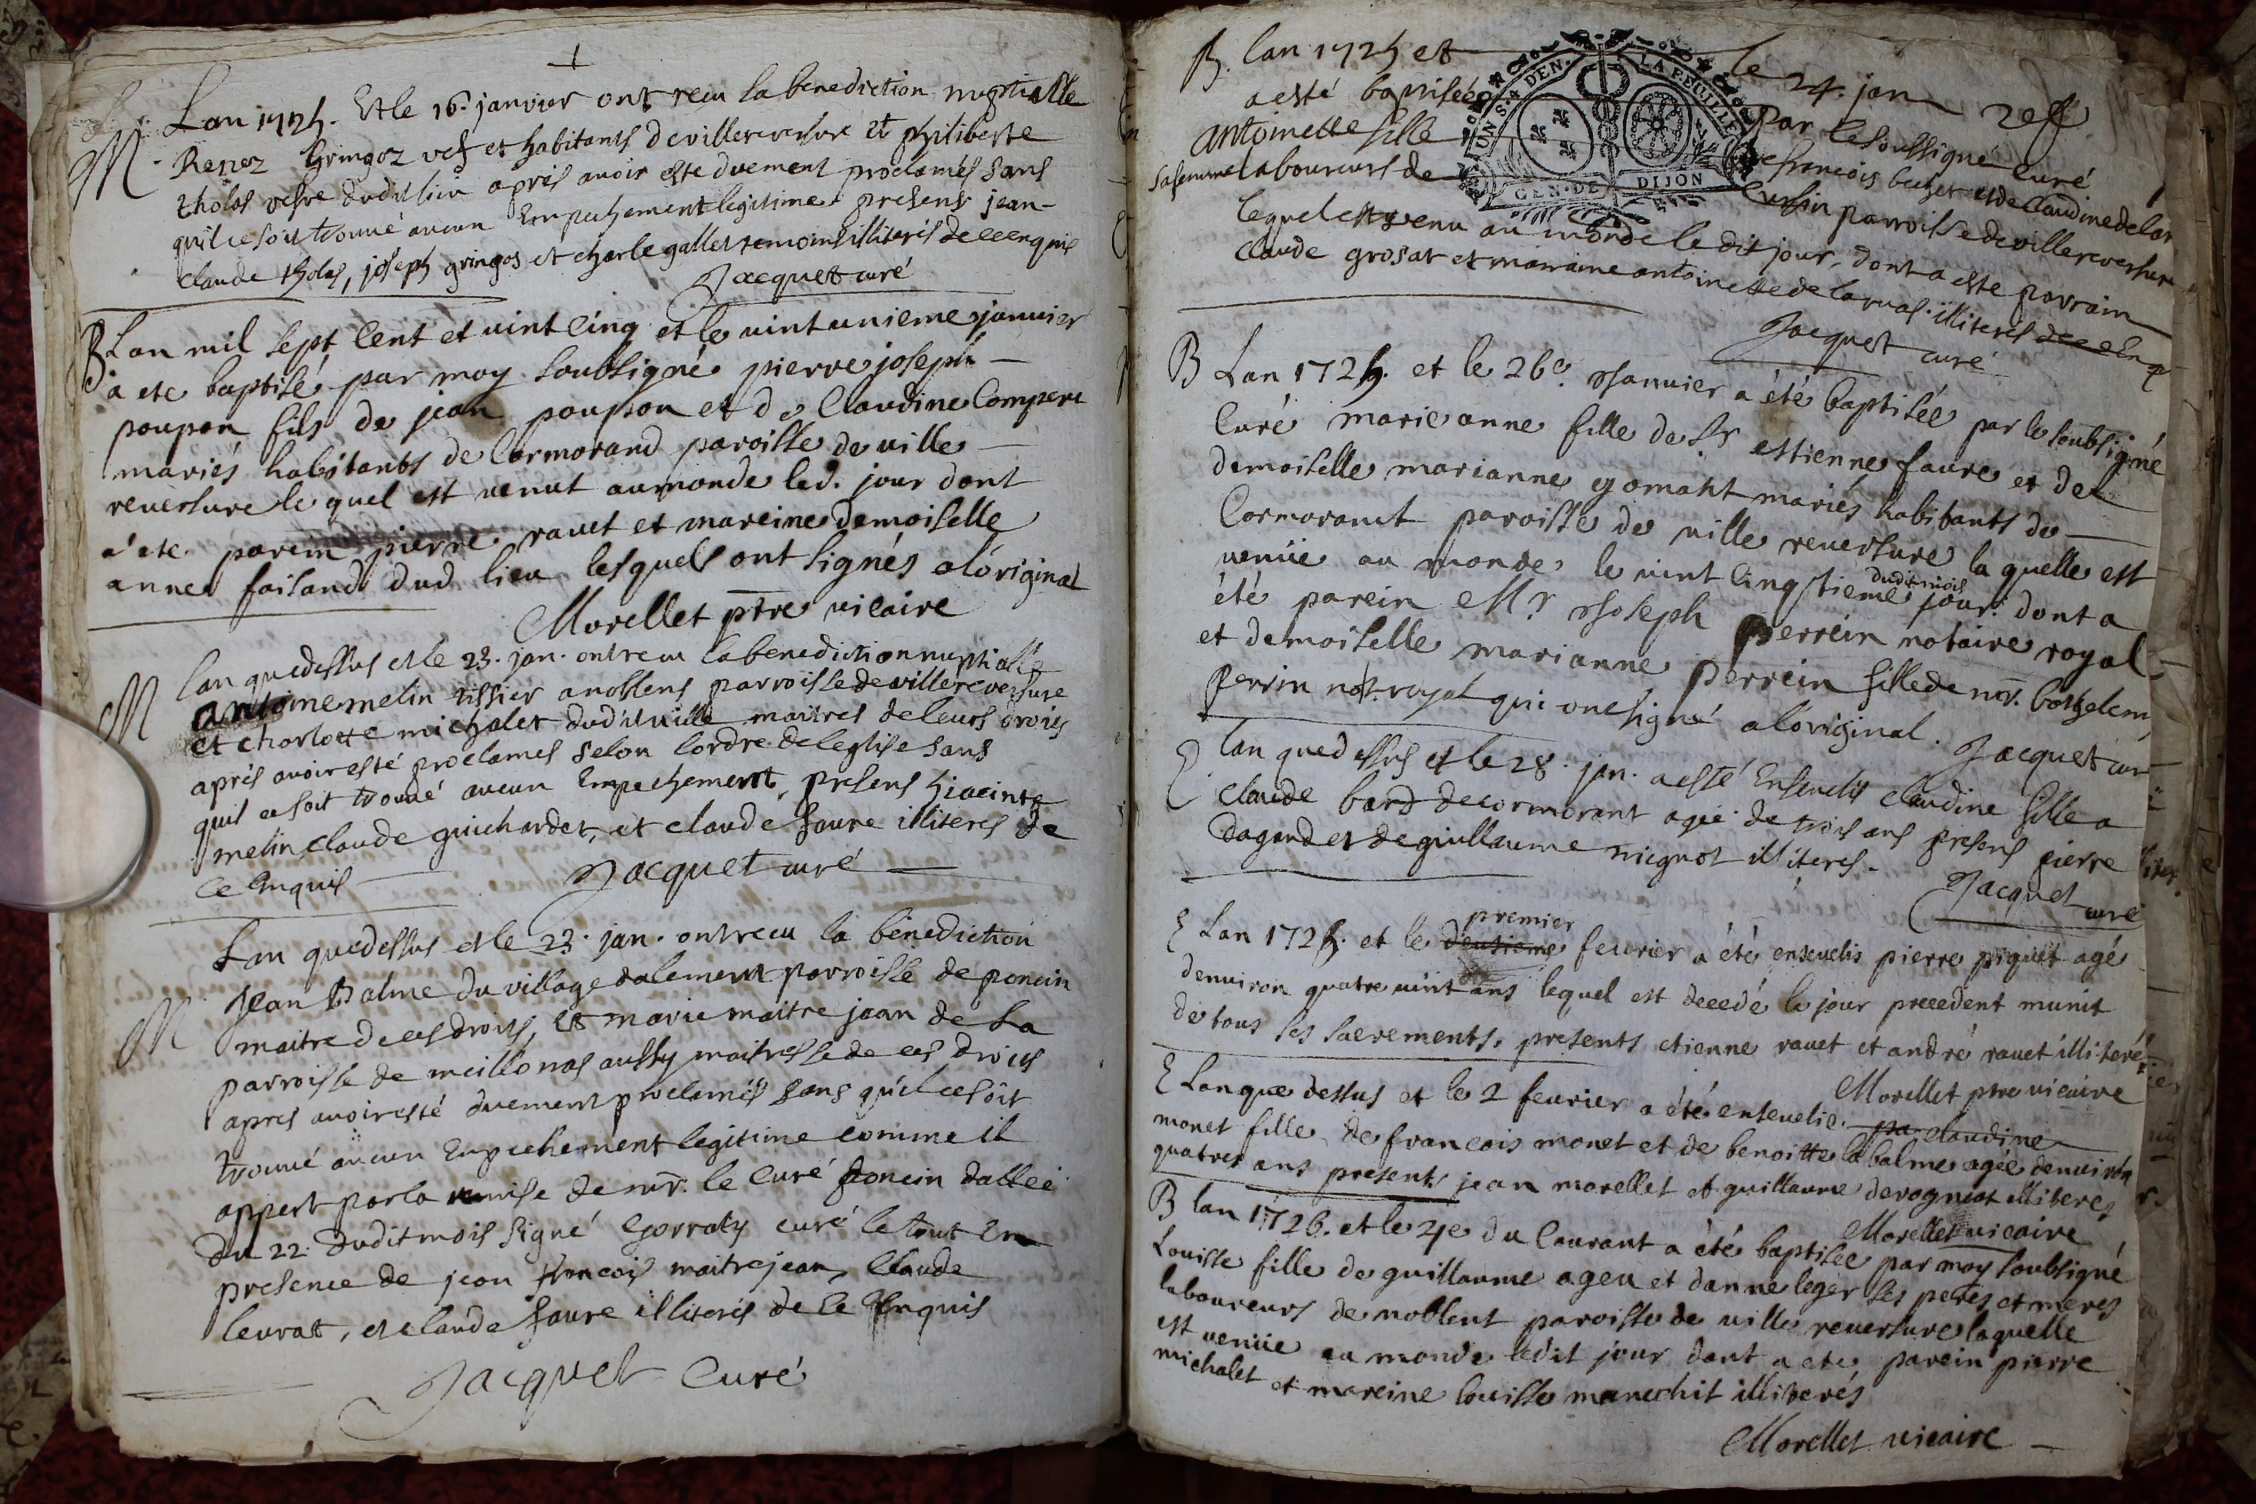 M. Lan 1725. Et le 16. janvier ont recu la benediction nuptialle
Renez Gringoz vef et habitants de villereversure et philiberte
tholas vefve dudit lieu après avoir este duement proclamés sans
quil ce soit trouué aucun Empechement legitime presens jean-
claude tholas, joseph gringos et charle gallet temoins illiterés de ce enquis
Jacquet curé
B Lan mil sept Cent et vint cinq et le vint unieme janvier
a ete baptisé par moy soubsigné pierre joseph
poupon fils de jean poupon et de Claudine Compere
mariés habitants de Cormorand paroisse de ville
reversure le quel est venut au monde led. jour dont
a ete parein pierre ravet et mareine demoiselle
anne faisand dud lieu lesquels ont signés a l'original
Morellet ptre vicaire
M lan quedessus et le 23. jan. ont recu la benediction nuptialle
antoine melin tissier a noblens parroisse de villereversure
et charlotte michalet dudit ville maitres de leurs droits
après avoir esté proclames selon lordre de leglise sans
quil ce soit trouué aucun Empechement, presens hiacinte
melin claude guichardet, et claude faure illiteres de
ce Enquis
Jacquet curé
M Lan quedessus et le 23. jan. ont recu la bénediction
Jean Balme du village dalement parroisse de poncin
maitre de ces droits, Et marie maitre jean de La
parroisse de meillonas aussy maitresse de ces droits
apres avoir esté duement proclamés sans qu'il ce soit
trouué aucun Empechement legitime comme il
appert par la remise de mr. le Curé poncin dattee
du 22. dudit mois signé Gorraty curé le tout En
presence de jean francois maitrejean, Claude
levrat, et claude faure illiterés de ce Enquis
Jacquet Curé
B. lan 1725 et le 24. jan
a esté baptisée par le soussigné curé
antoinette fille de francois bechet et de claudine delor
sa femme laboureurs de Cursin parroisse de villereversure
lequel est venu au monde le dit jour, dont a este parrain
claude grosat et marraine antoinette de larnas illiterés de ce Enq
Jacquet curé
GEN. DE DIJON
B Lan 1725. et le 26e. Janvier a été baptisée par le soubsigné
Curé marie anne fille de Sr estienne faure et de
demoiselle marianne gomant mariés habitants de
Cormoranct paroisse de ville reversure la quelle est
venüe au monde le vint cinqtieme jour dudit mois dont a
été parein Mr Joseph perrein notaire royal
et demoiselle marianne perrein fille de mr. bathelemi
perrin not. royal qui ont signé a l'original. Jacquet cur
E lan quedessus et le 28. jan. a esté Ensevelis claudine fille a
claude bard de cormorant agée de trois ans presens pierre
dagand et de guillaume nicguot illiteres.
Jacquet curé
E Lan 1725. et le deusieme premier fevrier a été ensevelis pierre piquet agé
denviron quatre vint ans lequel est decedé le jour precedent munit
de tous ses sacrements, presents etienne ravet et andré ravet illiteré
Morellet ptre vicaire
E Lan que dessus et le 2 fevrier a été ensevelie par claudine
monet fille de francois monet et de benoitte la balme agée denviron
quatres ans presents jean morellet et guillaume derognat illiteres
Morellet vicaire
B lan 1726. et le 4e du Courant a été baptisée par moy soubsigné
Louisse fille de guillaume ageu et danne leger ses peres et meres
laboureurs de noblent paroisse de ville reversure laquelle
est venüe au monde ledit jour dont a ete parein pierre
michalet et mareine louisse manechit illiterés
Morellet vicaire